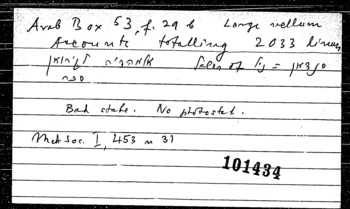 Arab Box 53, f. 29 b Large vellum
Accounts totalling 2033 dinars
אלמהדיה Sales of
Bad state. No photostat.
Med. Soc. I, 453 n 31
101434